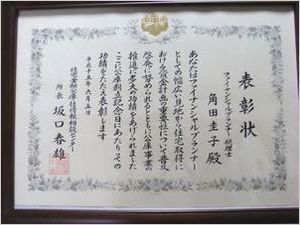 表彰状
ファイナンシャルプランナー 税理士
角田圭子殿
あなたはファイナンシャルプランナー
としての幅広い見地から住宅取得に
おける資金計画の重要性について普及
啓発に努められるとともに公庫事業の
推進に多大の功績をあげられました
ここに公庫創立記念日にあたりその
功績をたたえ表彰します
平成十五年六月五日
住宅金融公庫 住情報相談センター
所長 坂口春雄